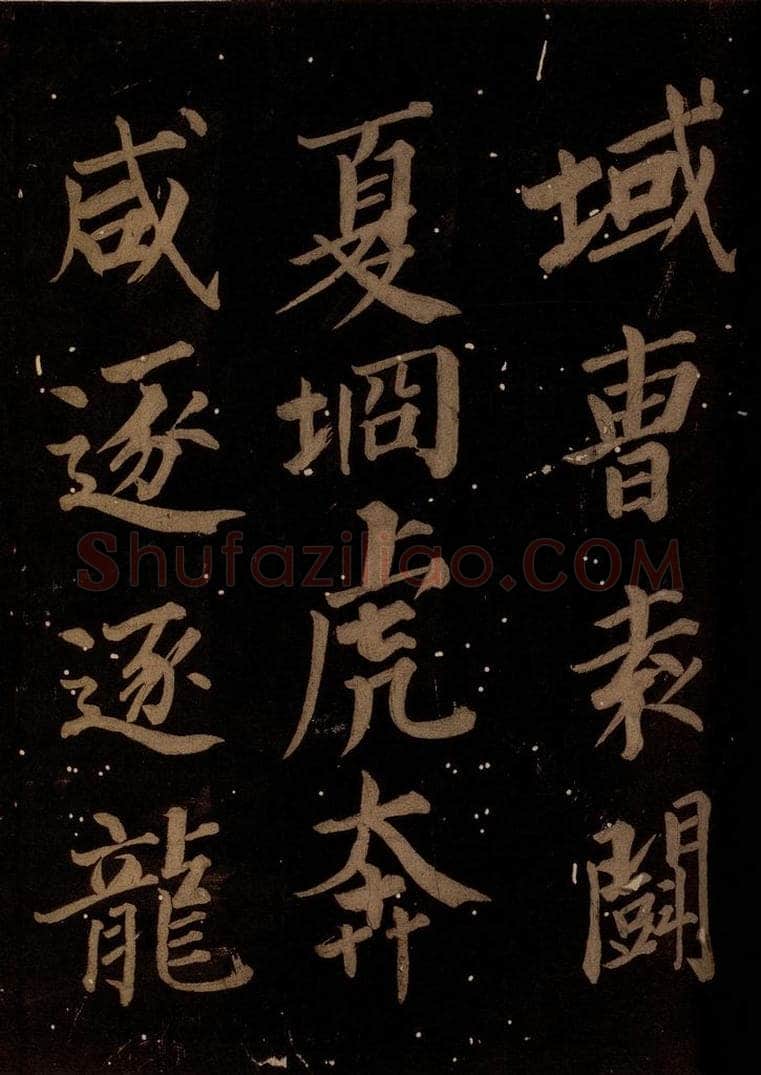 域曹袁鬬
夏坰虎奔
咸逐逐龍
Shufaziliao.COM